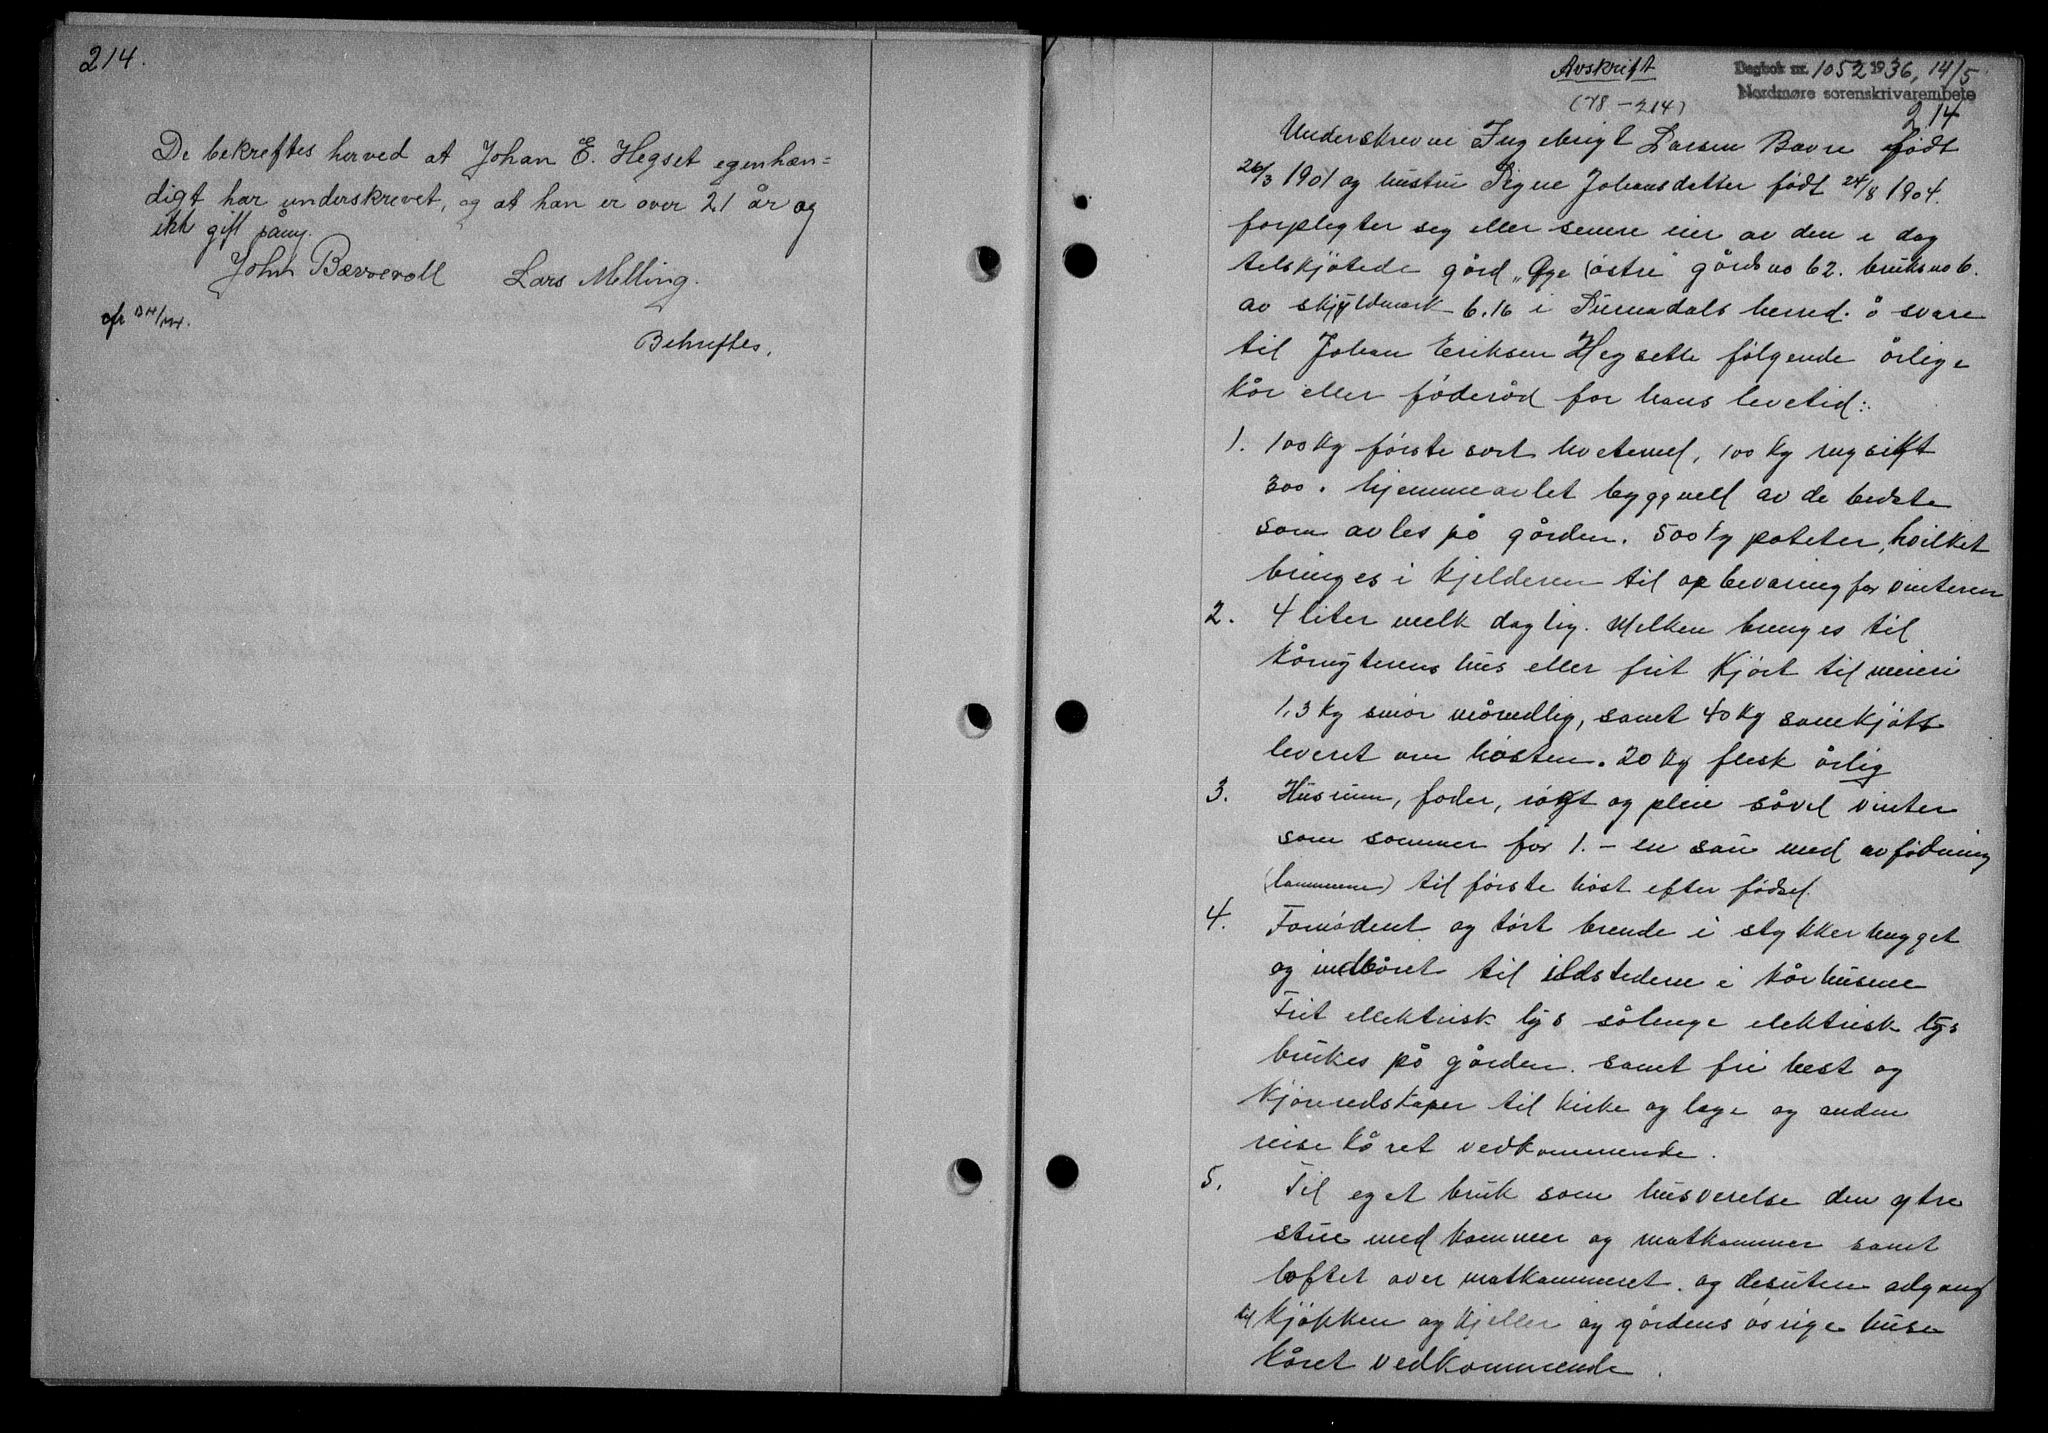 214.
De bekreftes herved at Johan E. Hegset egenhæn=
digt har underskrevet, og at han er over 21 år og
ikke gift påny.
John Bævrevoll Lars Melling.
Bekreftes.
Avskrift
(78-214)
Dagbok nr. 1052 1936, 14/5
Nordmøre sorenskrivarembete
214
Underskrevne Ingebrigt Larsen Bævre født
26/3 1901 og hustru Signe Johansdatter født 24/8 1904.
forpligter seg eller senere eier av den i dag
tilskjøtede gård "Øye (østre" gårds no 62. bruks no 6.
av skyldmark 6.16 i Surnadals herred. å svare
til Johan Eriksen Hegsette følgende årlige
kår eller føderåd for hans levetid:
1. 100 kg første sort hvetemel, 100 kg rugsikt
300 " hjemmeavlet byggmell av de bedste
som avles på gården. 500 kg poteter, hvilket
bringes i kjelderen til opbevaring for vinteren
2. 4 liter melk daglig. Melken bringes til
kårnyterens hus eller frit kjørt til meieri
1,3 kg smør månedlig, samt 40 kg sauekjøtt
leveret om høsten. 20 kg flesk årlig
3. Husrum, foder, røgt og pleie såvel vinter
som sommer for 1. - en sau med avfødning
(lammene) til første høst efter fødsel.
4. Fornødent og tørt brende i stykker hugget
og indbåret til ildstedene i kårhusene
Frit ellektrisk lys sålenge elektrisk lys
brukes på gården. samt fri hest og
kjøreredskaper til kirke og læge og anden
reise kåret vedkommende.
5. Til eget bruk som husverelse den ytre
stue med kammer og matkammer samt
loftet over matkammeret. og desuten adgang
til kjøkken og kjeller og gårdens øvrige huse
kåret vedkommende.